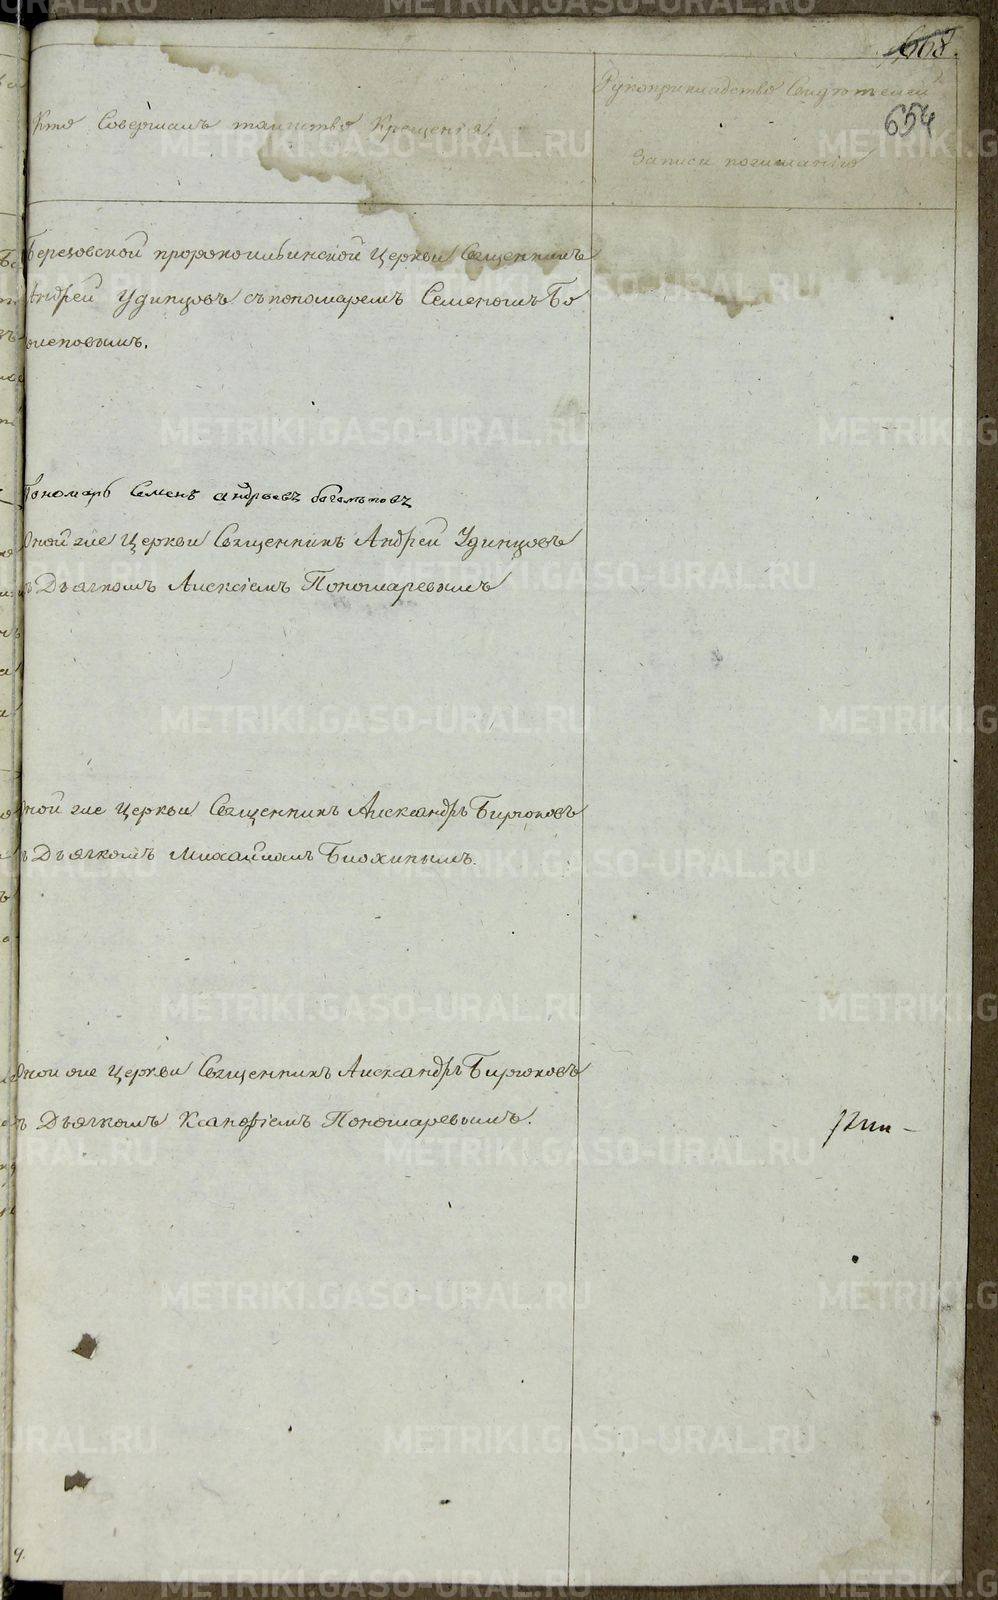 668.
654
Кто Совершалъ таинство Крещенія.
Рукоприкладство Свидѣтелей
Записи по желанію
Березовской пророкоильинской Церкви Священникъ
Андрей Удинцовъ съ пономаремъ Семеномъ Бо
Пономарь Семенъ андреевъ
Оной же Церкви Священникъ Андрей Удинцовъ
съ Дьячкомъ Алексіемъ Пономаревымъ
Оной же Церкви Священникъ Александръ Бирюковъ
съ Дьячкомъ Михаиломъ Блохинымъ.
Оной же Церкви Священникъ Александръ Бирюковъ
съ Дьячкомъ Ксанфіемъ Пономаревымъ.
METRIKI.GASO-URAL.RU